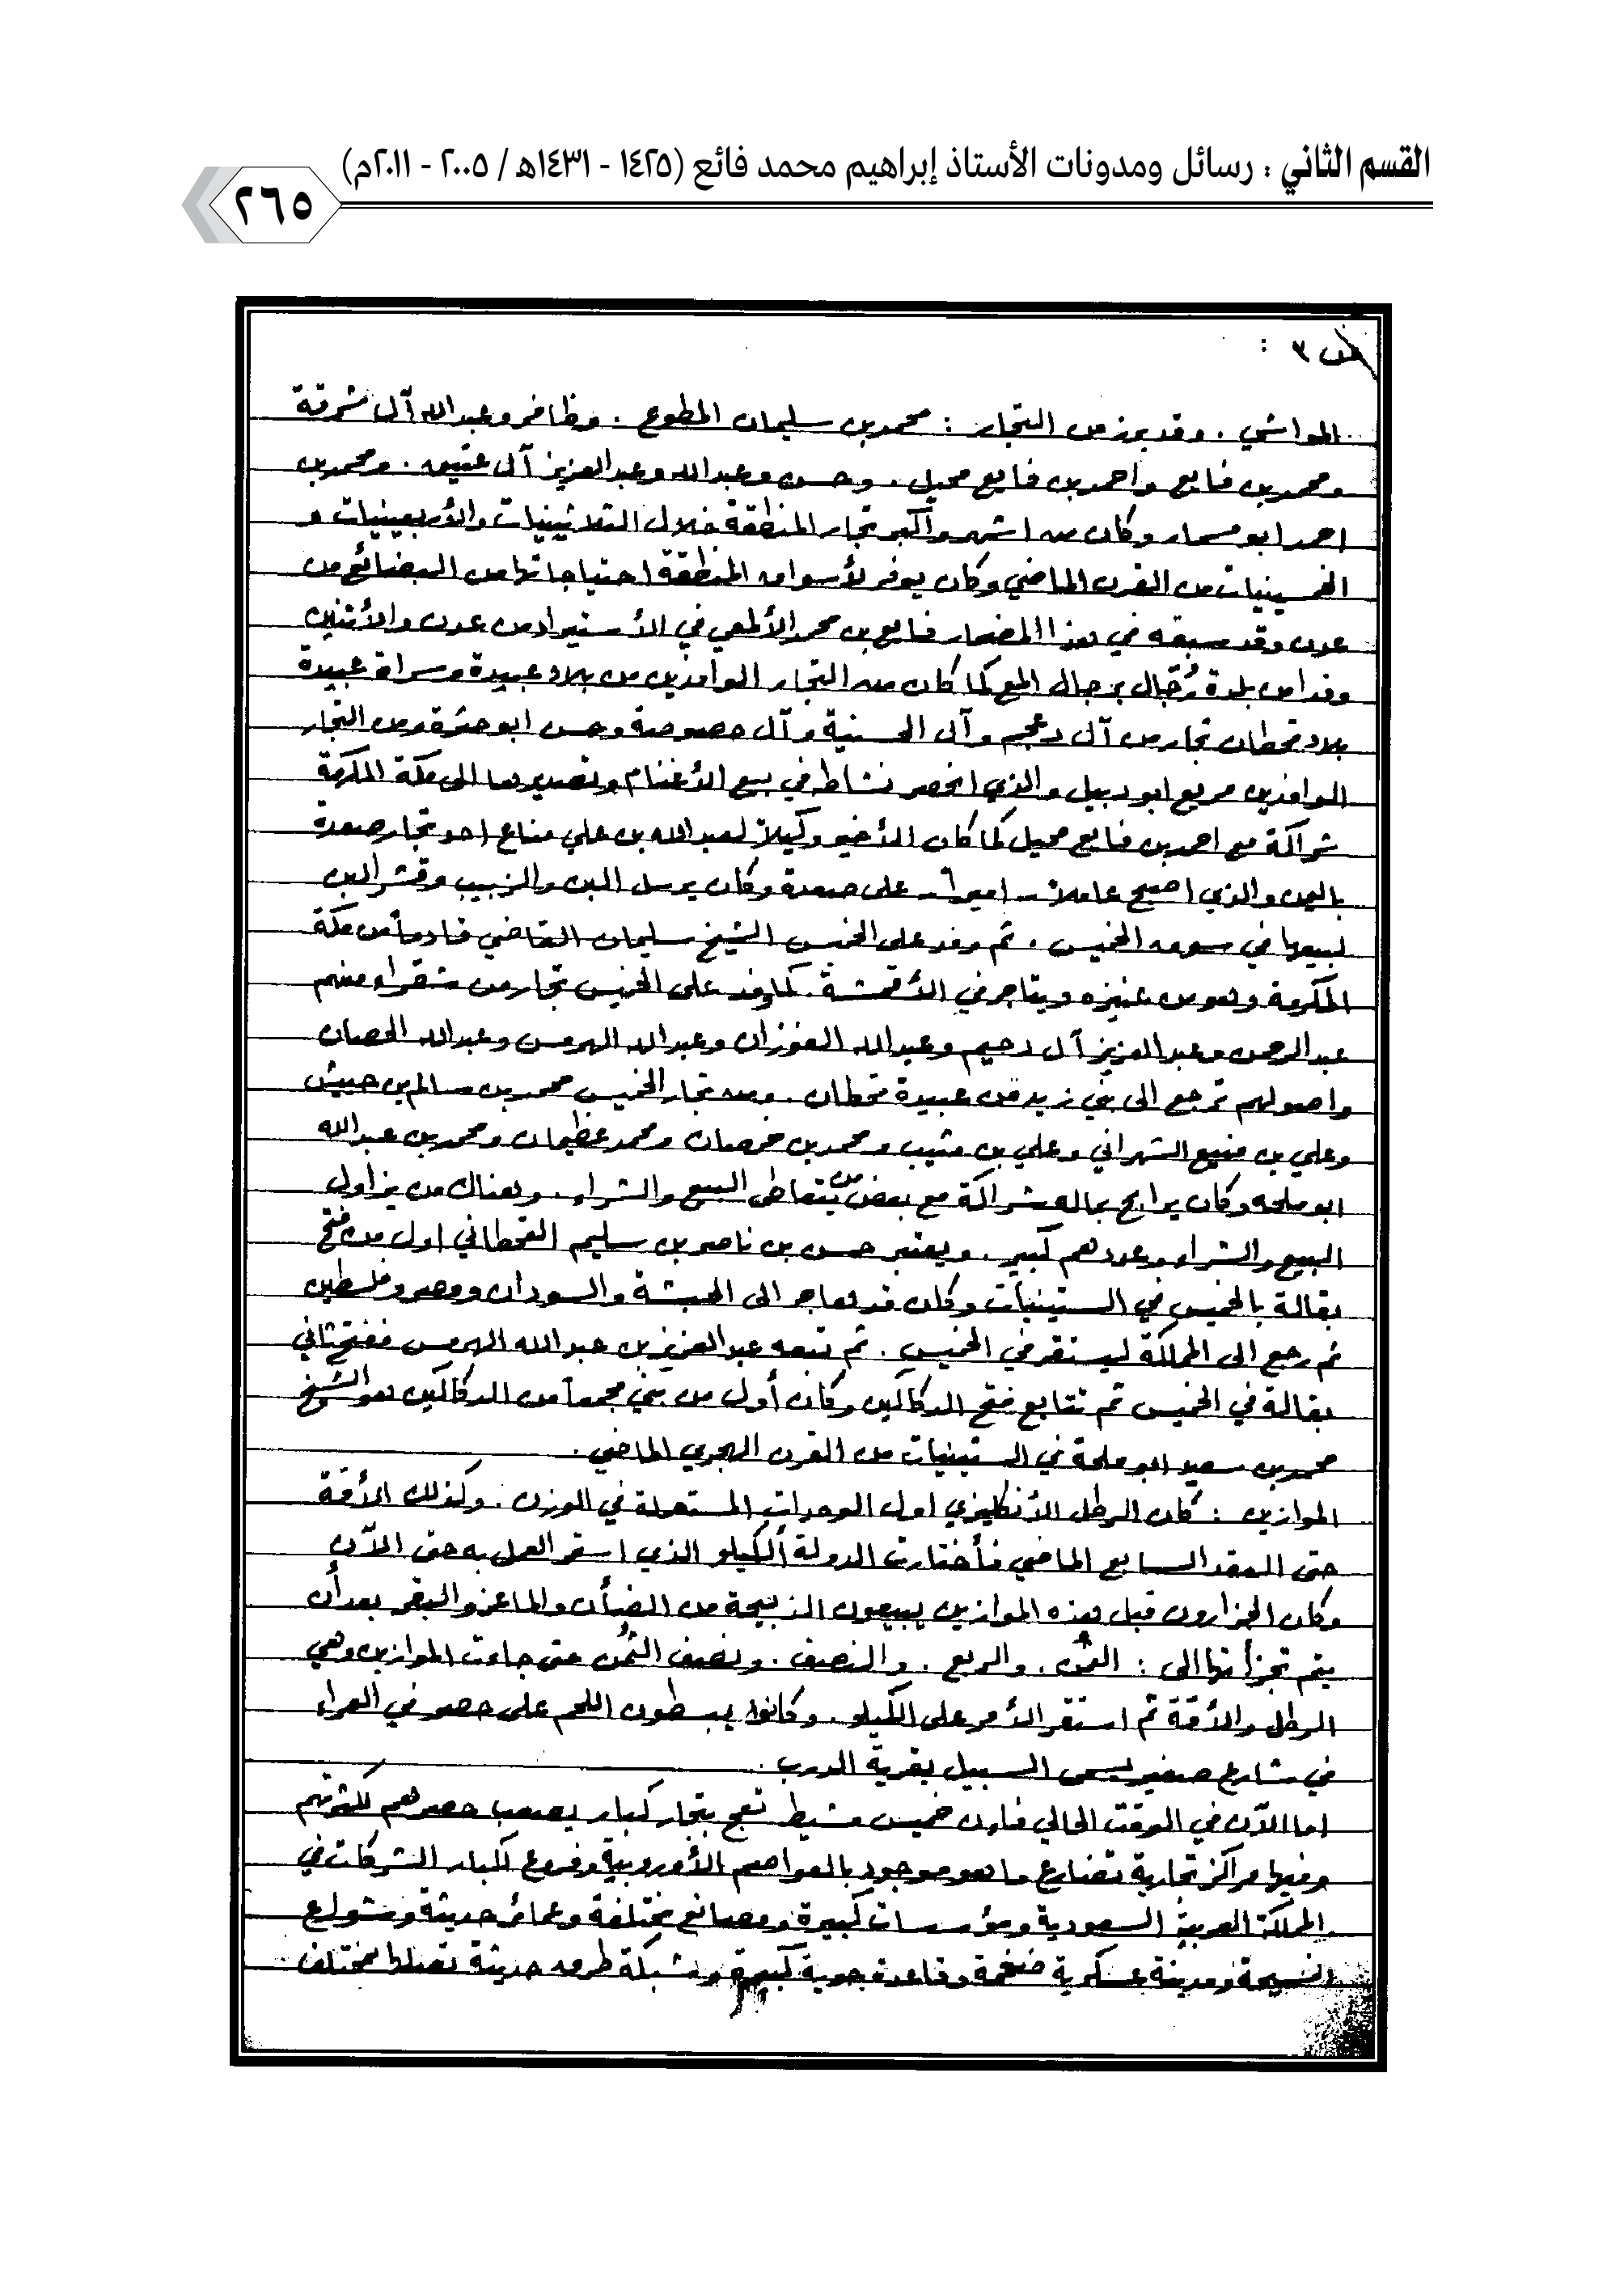 القسم الثاني : رسائل ومدونات الأستاذ إبراهيم محمد فائع (١٤٢٥ - ١٤٣١هـ / ٢٠٠٥ - ٢٠١١م)
٢٦٥
ص ٣ :
المواشي . وقد برز من التجار : محمد بن سليمان المطوع . وظافر وعبدالله آل مشرقة
ومحمد بن فايع واحمد بن فايع محيل . وحسن وعبدالله وعبدالعزيز آل عتيق . ومحمد بن
احمد ابو مسمار وكان من اشهر وأكبر تجار المنطقة خلال الثلاثينيات والأربعينيات و
الخمسينيات من القرن الماضي وكان يوفر لأسواق المنطقة احتياجاتها من البضائع من
عدن وقد سبقه في هذا المضمار فايع بن محمد الألمعي في الأستيراد من عدن والأثنين
وفدا من بلدة رُجَال برجال المع كما كان من التجار الوافدين من بلاد عبيدة وسراة عبيدة
بلاد قحطان تجار من آل دعجم وآل الحسنية وآل حصوصة وحسن ابو حترة ومن التجار
الوافدين مريع ابو دبيل والذي انحصر نشاطه في بيع الأغنام وتصديرها الى مكة المكرمة
شراكة مع احمد بن فايع محيل كما كان الأخير وكيلاً لعبدالله بن علي مناع احد تجار صعدة
باليمن والذي اصبح عاملاً - اميراً - على صعدة وكان يرسل البن والزبيب وقشر البن
لبيعها في سوق الخميس . ثم وفد على الخميس الشيخ سليمان القاضي قادماً من مكة
المكرمة وهو من عنيزه ويتاجر في الأقمشة . كما وفد على الخميس تجار من شقراء منهم
عبدالرحمن وعبدالعزيز آل دحيم وعبدالله الفوزان وعبدالله الهرمس وعبدالله الحصان
واصولهم ترجع الى بني زيد من عبيدة قحطان . ومن تجار الخميس محمد بن سالم بن حبيش
وعلي بن منيع الشهراني وعلي بن مثيب ومحمد بن خرصان ومحمد عظيمان ومحمد بن عبدالله
ابو ملحه وكان يرابح بماله شراكة مع بعض من يتعاطى البيع والشراء . وهناك من يزاول
البيع والشراء وعددهم كبير . ويعتبر حسن بن ناصر بن سليم القحطاني اول من فتح
بقالة بالخميس في الستينيات وكان قد هاجر الى الحبشة والسودان ومصر وفلسطين
ثم رجع الى المملكة ليستقر في الخميس . ثم تبعه عبدالعزيز بن عبدالله الهرمس ففتح ثاني
بقالة في الخميس ثم تتابع فتح الدكاكين وكان أول من بني مجمعاً من الدكاكين هو الشيخ
محمد بن سعيد ابو ملحة في الستينيات من القرن الهجري الماضي .
الموازين : كان الرطل الأنكليزي اول الوحدات المستعملة في الوزن . وكذلك الأقة
حتى العقد السابع الماضي فأختارت الدولة الكيلو الذي استمر العمل به حتى الآن
وكان الجزارون قبل هذه الموازين يبيعون الذبيحة من الضأن والماعز والبقر بعد أن
يتم تجزأتها الى : الثمن . والربع . والنصف . ونصف الثُمن حتى جاءت الموازين وهي
الرطل والأقة ثم استقر الأمر على الكيلو . وكانوا يبسطون اللحم على حصر في العراء
في شارع صغير يسمى السبيل بقرية الدرب .
اما الآن في الوقت الحالي فإن خميس مشيط تعج بتجار كبار يصعب حصرهم لكثرتهم
وفيها مراكز تجارية تضارع ما هو موجود بالعواصم الأوروبية وفروع لكبار الشركات في
المملكة العربية السعودية ومؤسسات كبيرة ومصانع مختلفة وعمائر حديثة وشوارع
فسيحة ومدينة عسكرية ضخمة وقاعدة جوية كبيرة وشبكة طرق حديثة تصلها بمختلف